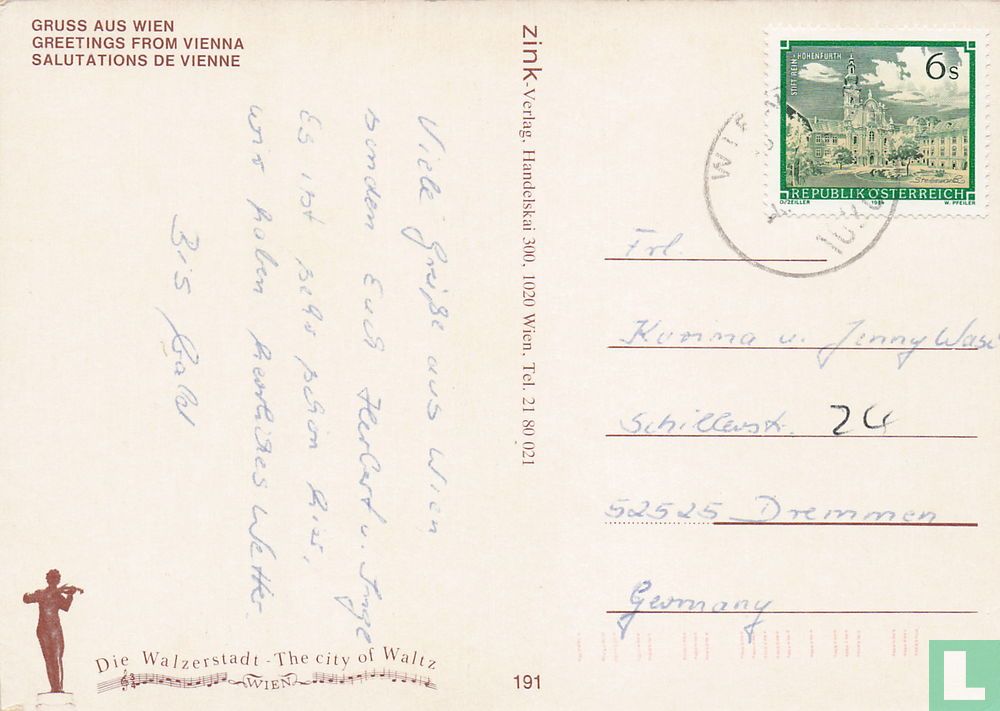 GRUSS AUS WIEN
GREETINGS FROM VIENNA
SALUTATIONS DE VIENNE
Viele Grüße aus Wien
senden Euch Herbert u. Inge
Es ist sehr schön hier,
wir haben herrliches Wetter.
Bis bald
Die Walzerstadt - The city of Waltz
WIEN
zink-Verlag, Handelskai 300, 1020 Wien, Tel. 21 80 021
191
STIFT REIN-HOHENFURTH
6s
REPUBLIK ÖSTERREICH
O. ZEILLER 1984 W. PFEILER
WIEN
Frl.
Korina u. Jenny
Schillerstr. 24
52525 Dremmen
Germany
L